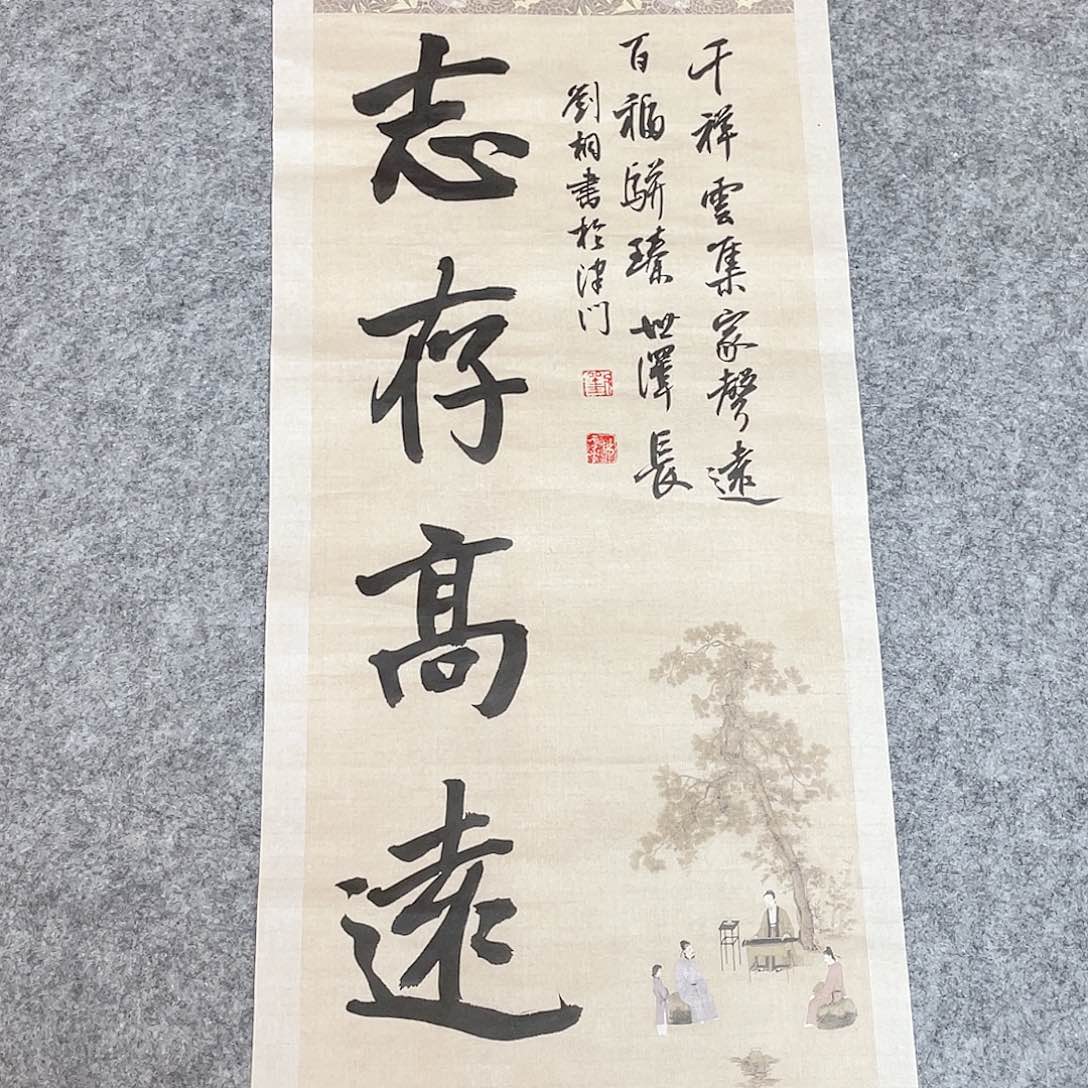 千祥雲集家聲遠
百福駢臻世澤長
劉桐書於津门
志存高遠